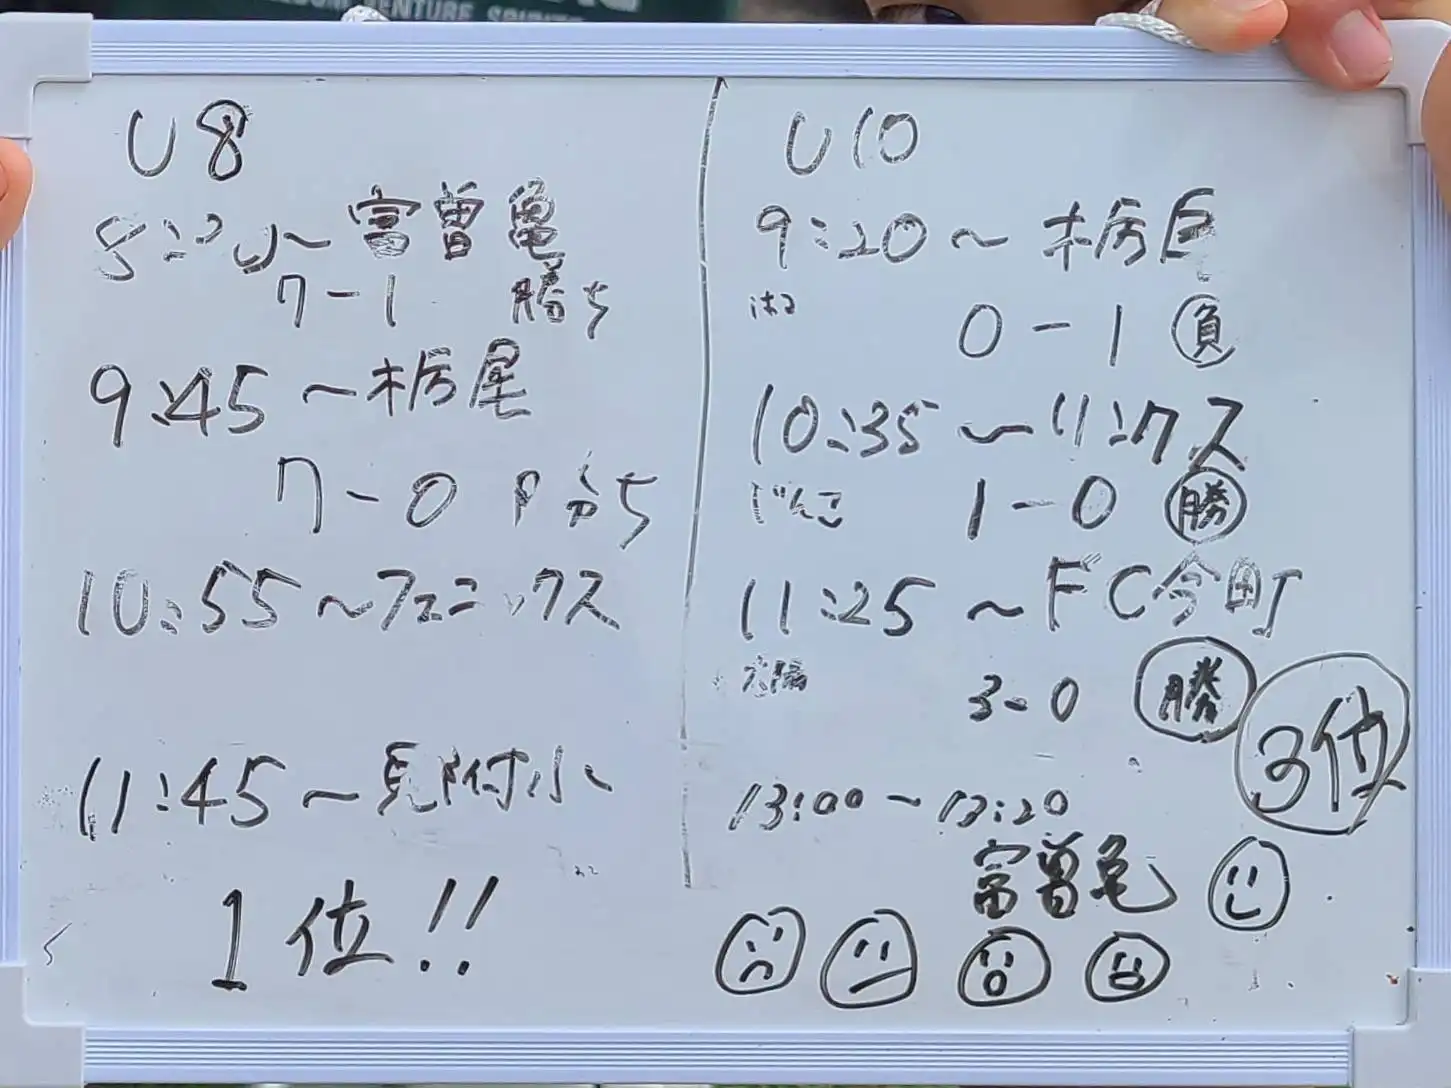 U8
8:50~富曽亀
7-1 勝ち
9:45~栃尾
7-0 勝ち
10:55~フェニックス
11:45~見附小
1位!!
U10
9:20~栃尾
はる
0-1 負
10:35~リンクス
げんこ
1-0 勝
11:25~FC今町
3-0 勝
3位
13:00~13:20
富曽亀